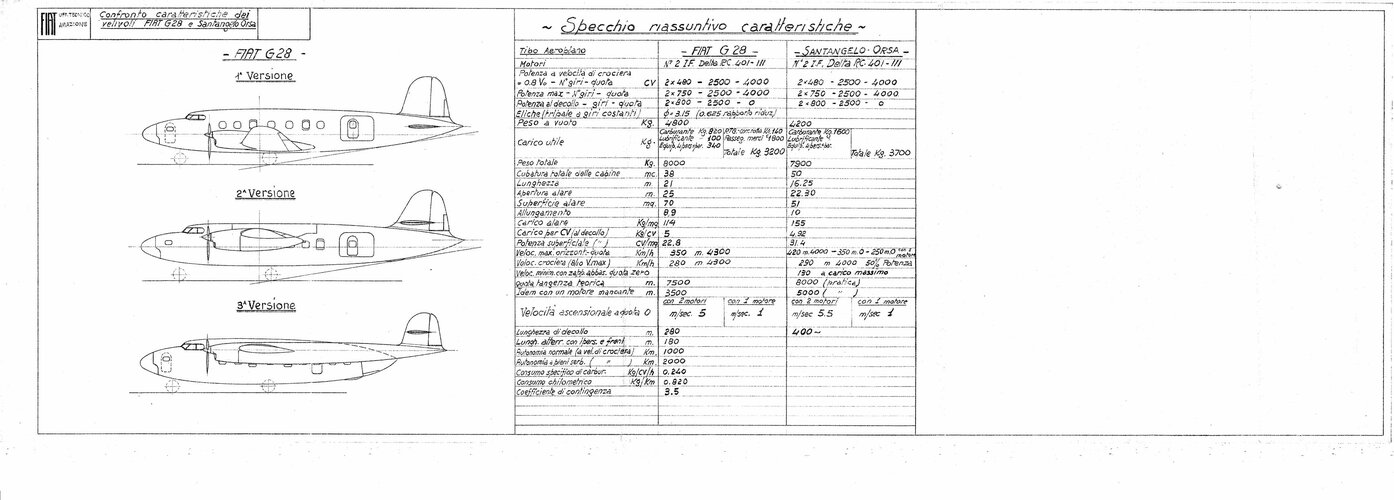 FIAT UFF. TECNICO AVIAZIONE
Confronto caratteristiche dei
velivoli FIAT G28 e Santangelo Orsa
- FIAT G28 -
1ª Versione
2ª Versione
3ª Versione
~ Specchio riassuntivo caratteristiche ~
Tipo Aeroplano - FIAT G28 - - SANTANGELO-ORSA -
Motori N° 2 I.F. Delta RC 401-III N° 2 I.F. Delta RC 401-III
Potenza a velocità di crociera
= 0.8 Vo - N° giri - quota CV 2×480 - 2500 - 4000 2×480 - 2500 - 4000
Potenza max - N° giri - quota 2×750 - 2500 - 4000 2×750 - 2500 - 4000
Potenza al decollo - giri - quota 2×800 - 2500 - 0 2×800 - 2500 - 0
Eliche (tripale a giri costanti) φ= 3.15 (0.625 rapporto riduz)
Peso a vuoto Kg. 4800 4200
Carico utile Kg.
Carburante Kg. 820 Kg. 160 Carburante Kg. 1600
Lubrificante 100 Passeg. merci 1800 Lubrificante
Equip. 4 pers. 340
Totale Kg 3200 Totale Kg. 3700
Peso totale Kg. 8000 7900
Cubatura totale delle cabine mc. 38 50
Lunghezza m. 21 16.25
Apertura alare m. 25 22.30
Superficie alare mq. 70 51
Allungamento 8.9 10
Carico alare Kg/mq 114 155
Carico per CV (al decollo) Kg/CV 5 4.92
Potenza superficiale ( " ) CV/mq 22.8 31.4
Veloc. max. orizzont.- quota Km/h 350 m. 4300 420 m. 4000 - 350 m. 0 - 250 m. 0
Veloc. crociera (810 V.max) Km/h 280 m 4300 290 m 4000 50% Potenza
Veloc. minim. con zavb. abbas. quota zero 130 a carico massimo
quota tangenza teorica m. 7500 8000 (pratica)
Idem con un motore mancante m. 3500 5000 ( " )
con 2 motori con 1 motore con 2 motori con 1 motore
Velocità ascensionale a quota 0 m/sec 5 m/sec. 1 m/sec 5.5 m/sec 1
Lunghezza di decollo m. 280 400 ~
Lungh. atterr. con ipers. e freni m. 180
Autonomia normale (a vel. di crociera) Km. 1000
Autonomia a pieni serb. ( " ) Km. 2000
Consumo specifico di carbur. Kg/CV/h 0.240
Consumo chilometrico Kg/Km 0.820
Coefficiente di contingenza 3.5